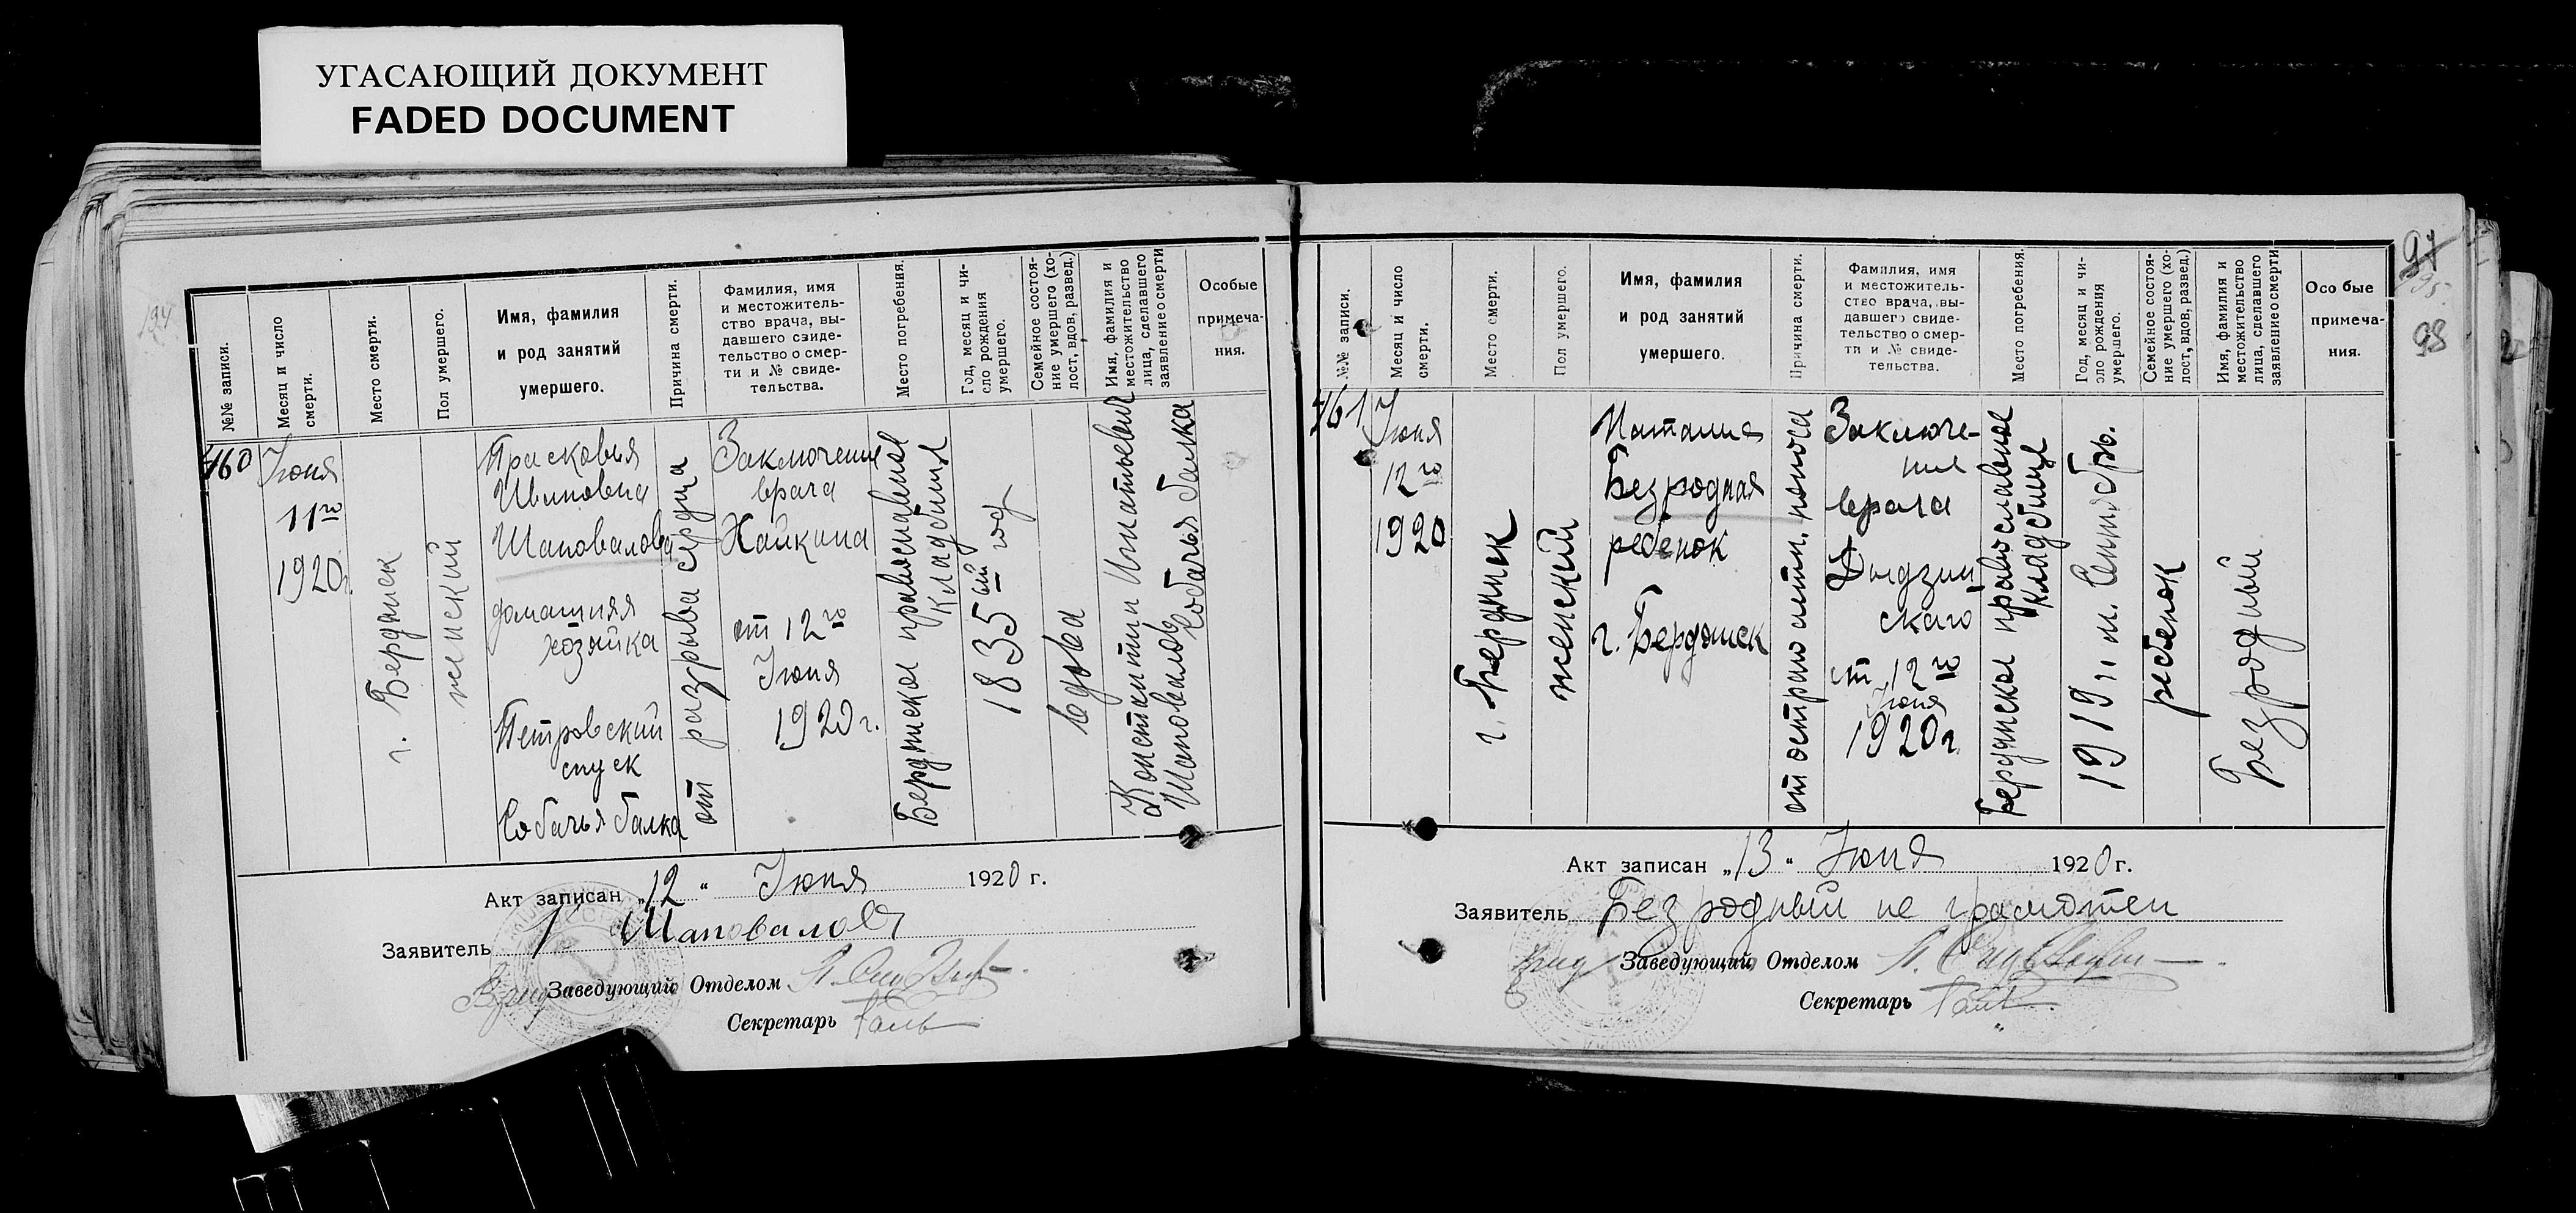 УГАСАЮЩИЙ ДОКУМЕНТ
FADED DOCUMENT
№№ записи.
Месяц и число
смерти.
Место смерти.
Пол умершего.
Имя, фамилия
и род занятий
умершего.
Причина смерти.
Фамилия, имя
и местожитель-
ство врача, вы-
давшего свиде-
тельство о смер-
ти и № свиде-
тельства.
Место погребения.
Год, месяц и чи-
сло рождения
умершего.
Семейное состоя-
ние умершего (хо-
лост, вдов, развед.)
Имя, фамилия и
местожительство
лица, сделавшего
заявление о смерти
Особые
примеча-
ния.
460
Июня
11го
1920г.
г. Бердянск
женский
Прасковья
Ивановна
Шаповалова
домашняя
хозяйка
Петровский
спуск
Собачья балка
от разрыва сердца
Заключение
врача
Хайкина
от 12го
Июня
1920 г.
Бердянское православное
кладбище
1835ый год
вдова
Константин Игнатьевич
Шаповалов
Собачья балка
Акт записан „12“ Июня 1920 г.
Заявитель Шаповалов
Врид Заведующий Отделом
Секретарь
97
98
№№ записи.
Месяц и число
смерти.
Место смерти.
Пол умершего.
Имя, фамилия
и род занятий
умершего.
Причина смерти.
Фамилия, имя
и местожитель-
ство врача, вы-
давшего свиде-
тельство о смер-
ти и № свиде-
тельства.
Место погребения.
Год, месяц и чи-
сло рождения
умершего.
Семейное состоя-
ние умершего (хо-
лост, вдов, развед.)
Имя, фамилия и
местожительство
лица, сделавшего
заявление о смерти
Особые
примеча-
ния.
461
Июня
12го
1920
г. Бердянск
женский
Наталия
Безродная
ребенок
г. Бердянск
от остраго летн. поноса
Заключе-
ние
врача
скаго
от 12го
Июня
1920 г.
Бердянское православное
кладбище
1919 г. м. Сентябрь.
ребенок
Безродный
Акт записан „13“ Июня 1920 г.
Заявитель Безродный не грамотен
Врид Заведующий Отделом
Секретарь